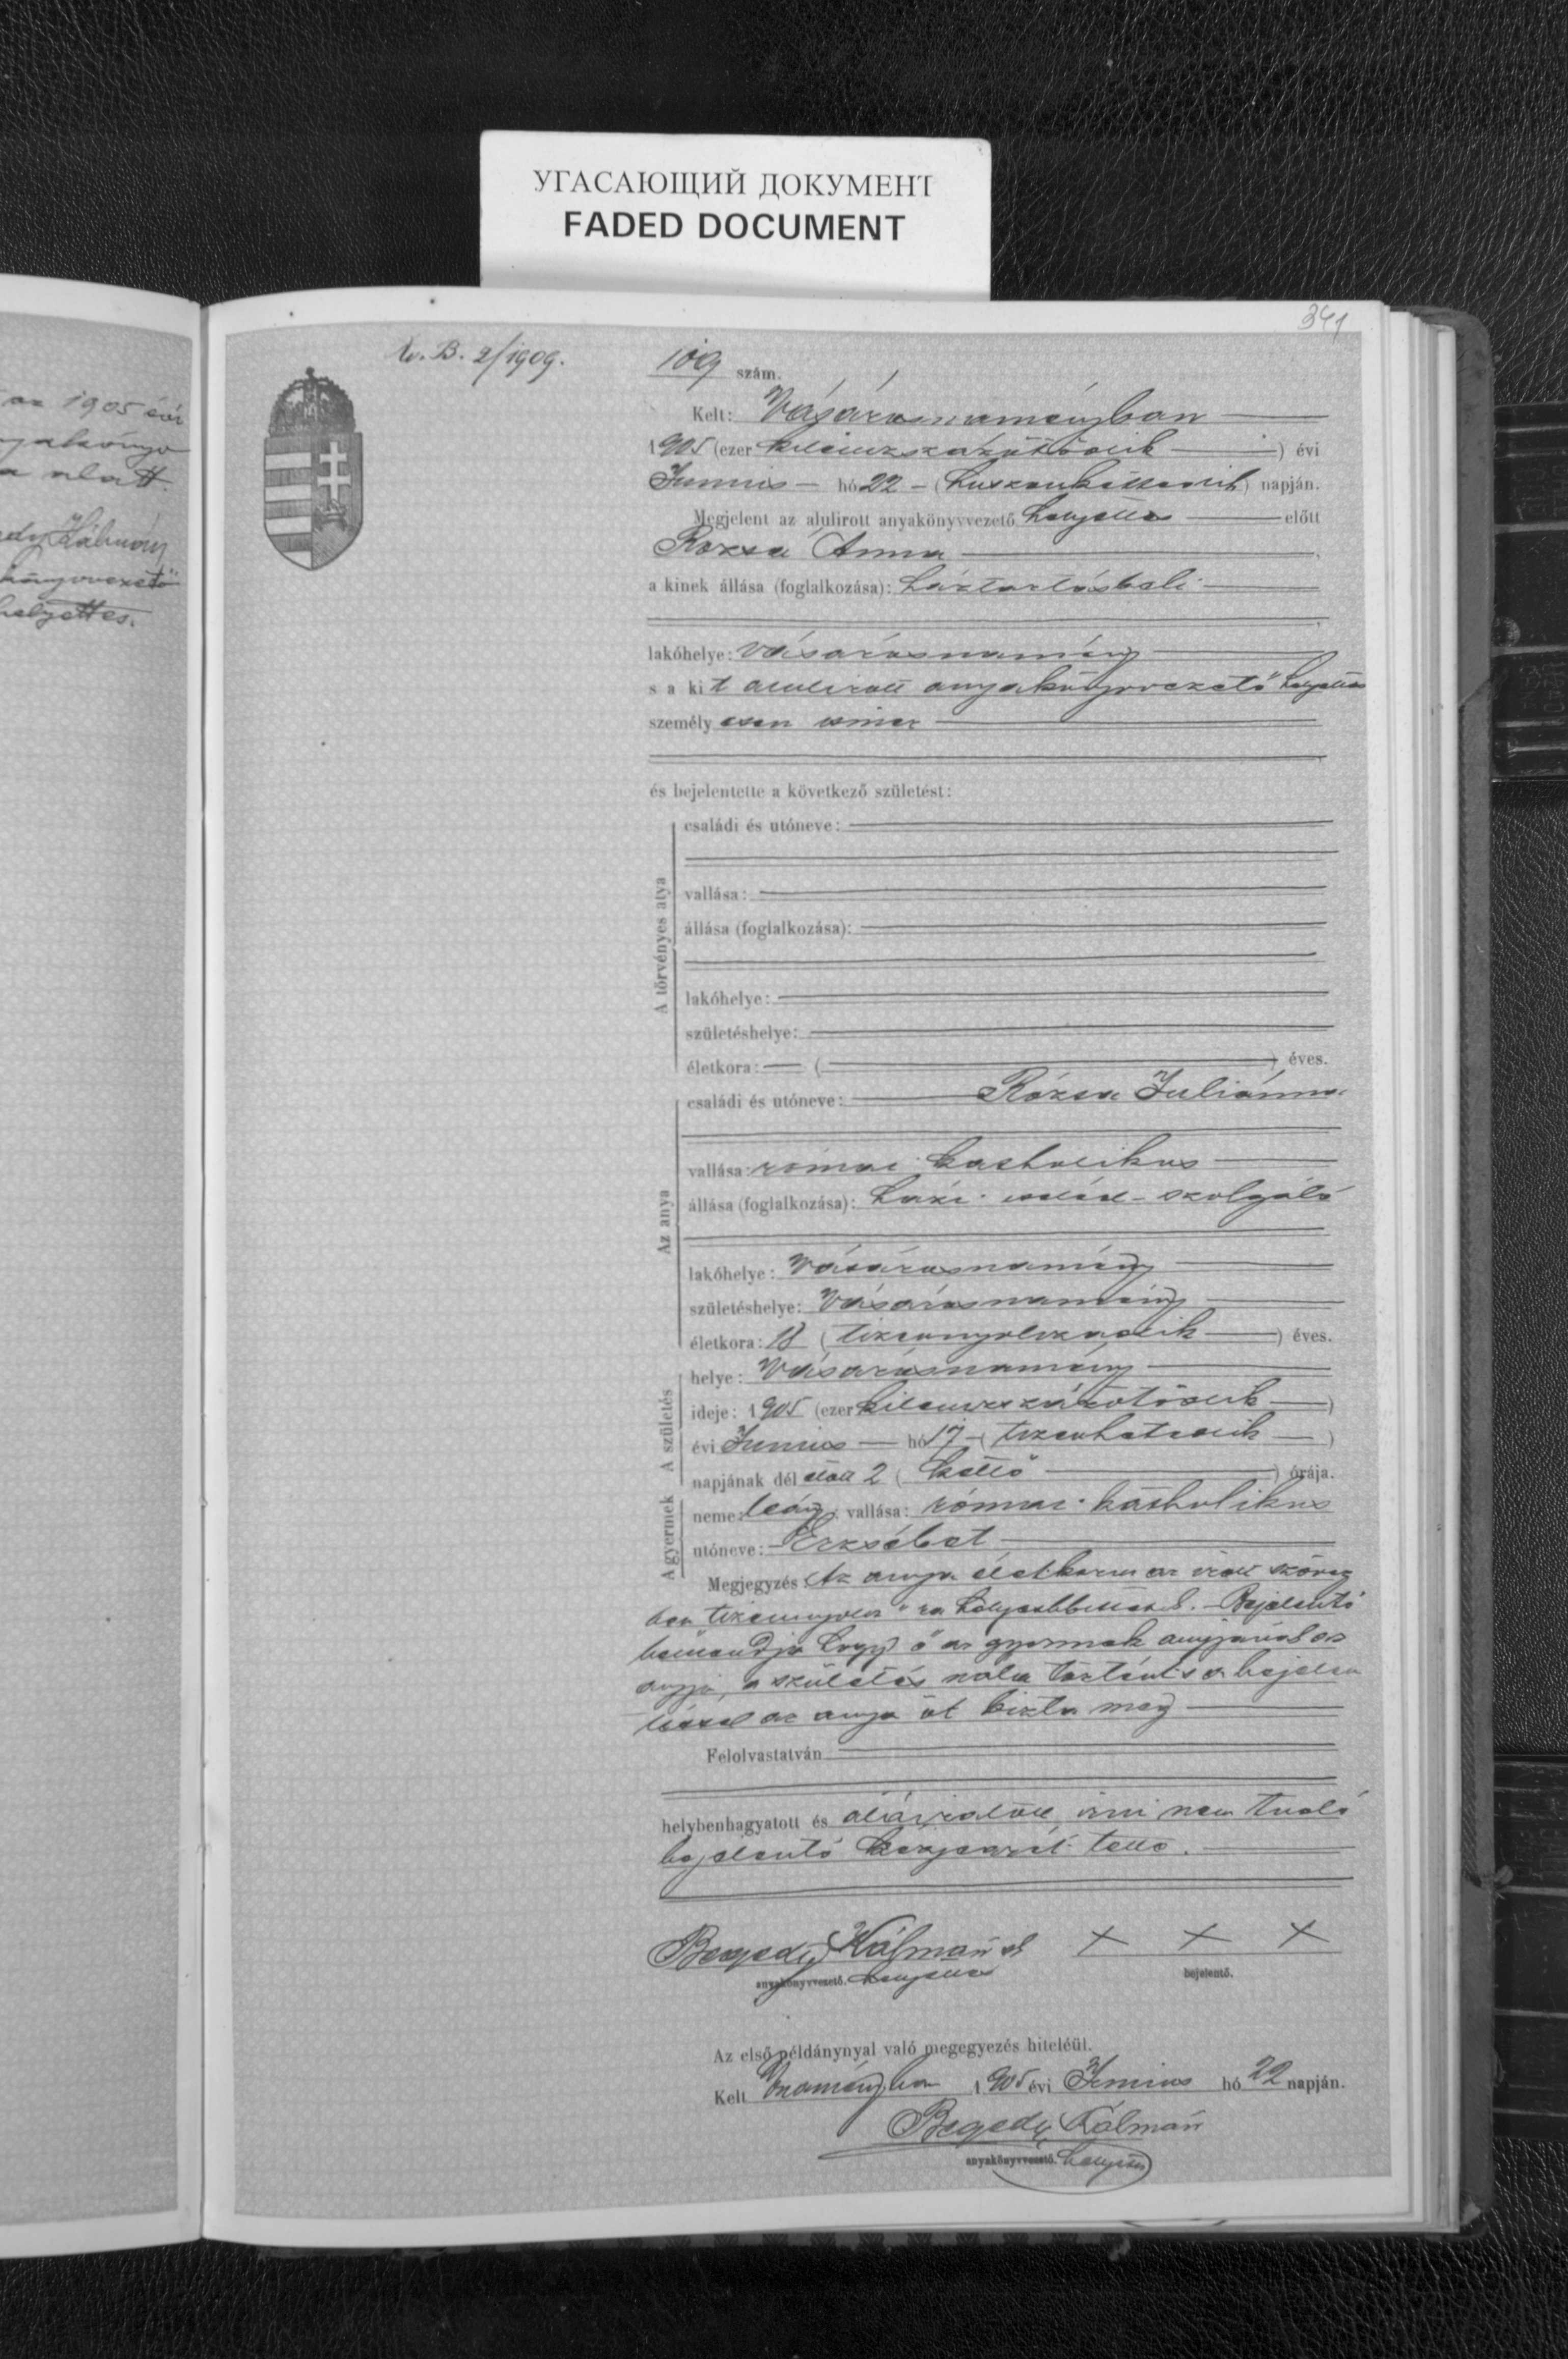 УГАСАЮЩИЙ ДОКУМЕНТ
FADED DOCUMENT
341
az 1905 évi
a alatt.
Kálmán
helyettes.
B. 2/1909.
109 szám.
Kelt: Vásárosnaményban
1905 (ezer kilenczszázötödik) évi
Junius hó 22 (huszonkettedik) napján.
Megjelent az alulirott anyakönyvvezető helyettes előtt
Rozsa Anna
a kinek állása (foglalkozása): háztartásbeli
lakóhelye: Vásárosnamény
s a kit alulirott anyakönyvvezető helyettes
személyesen ismer
és bejelentette a következő születést:
A törvényes atya
családi és utóneve:
vallása:
állása (foglalkozása):
lakóhelye:
születéshelye:
életkora: ( ) éves.
Az anya
családi és utóneve: Rózsa Juliánna
vallása: római katholikus
állása (foglalkozása): házi cseléd-szolgáló
lakóhelye: Vásárosnamény
születéshelye: Vásárosnamény
életkora: 18 ( ) éves.
A születés
helye: Vásárosnamény
ideje: 1905 (ezer kilenczszázötödik)
évi Junius hó 17 ( )
napjának dél előtt 2 (kettő) órája.
A gyermek
neme: leány; vallása: római katholikus
utóneve: Erzsébet
Megjegyzés: Az anya életkora az irott szöveg
ben tizennyolcz "ra helyesbbittetik. Bejelentő
bemondja hogy ő a gyermek anyjának az
anyja, a születés nála történt s a bejelen
téssel az anya őt bizta meg
Felolvastatván
helybenhagyatott és aláiratott, irni nem tudó
bejelentő kézjegyét tette.
Begedy Kálmán
anyakönyvvezető. helyettes
× × ×
bejelentő.
Az első példánynyal való megegyezés hiteléül.
Kelt Vnaményban 1905 évi Junius hó 22 napján.
Begedy Kálmán
anyakönyvvezető. helyettes